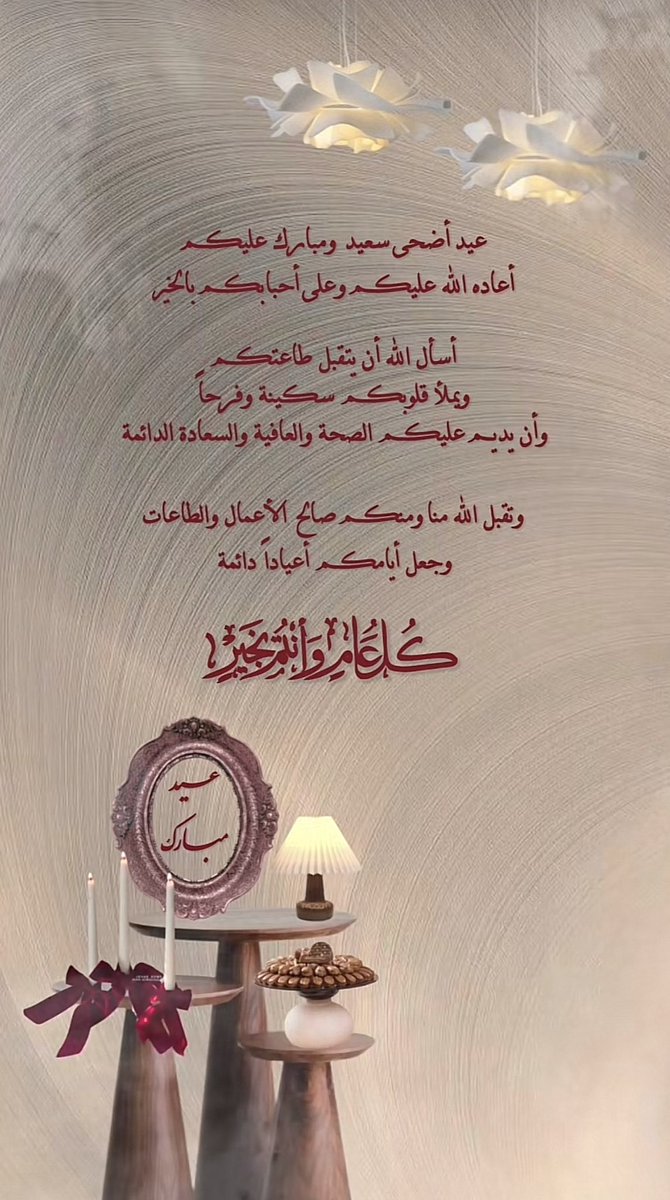 عيد أضحى سعيد ومبارك عليكم
أعاده الله عليكم وعلى أحبابكم بالخير
أسأل الله أن يتقبل طاعتكم
ويملأ قلوبكم سكينة وفرحاً
وأن يديم عليكم الصحة والعافية والسعادة الدائمة
وتقبل الله منا ومنكم صالح الأعمال والطاعات
وجعل أيامكم أعياداً دائمة
كُل عَامٍ وَأنتُم بِخَيْرٍ
عيد
مبارك